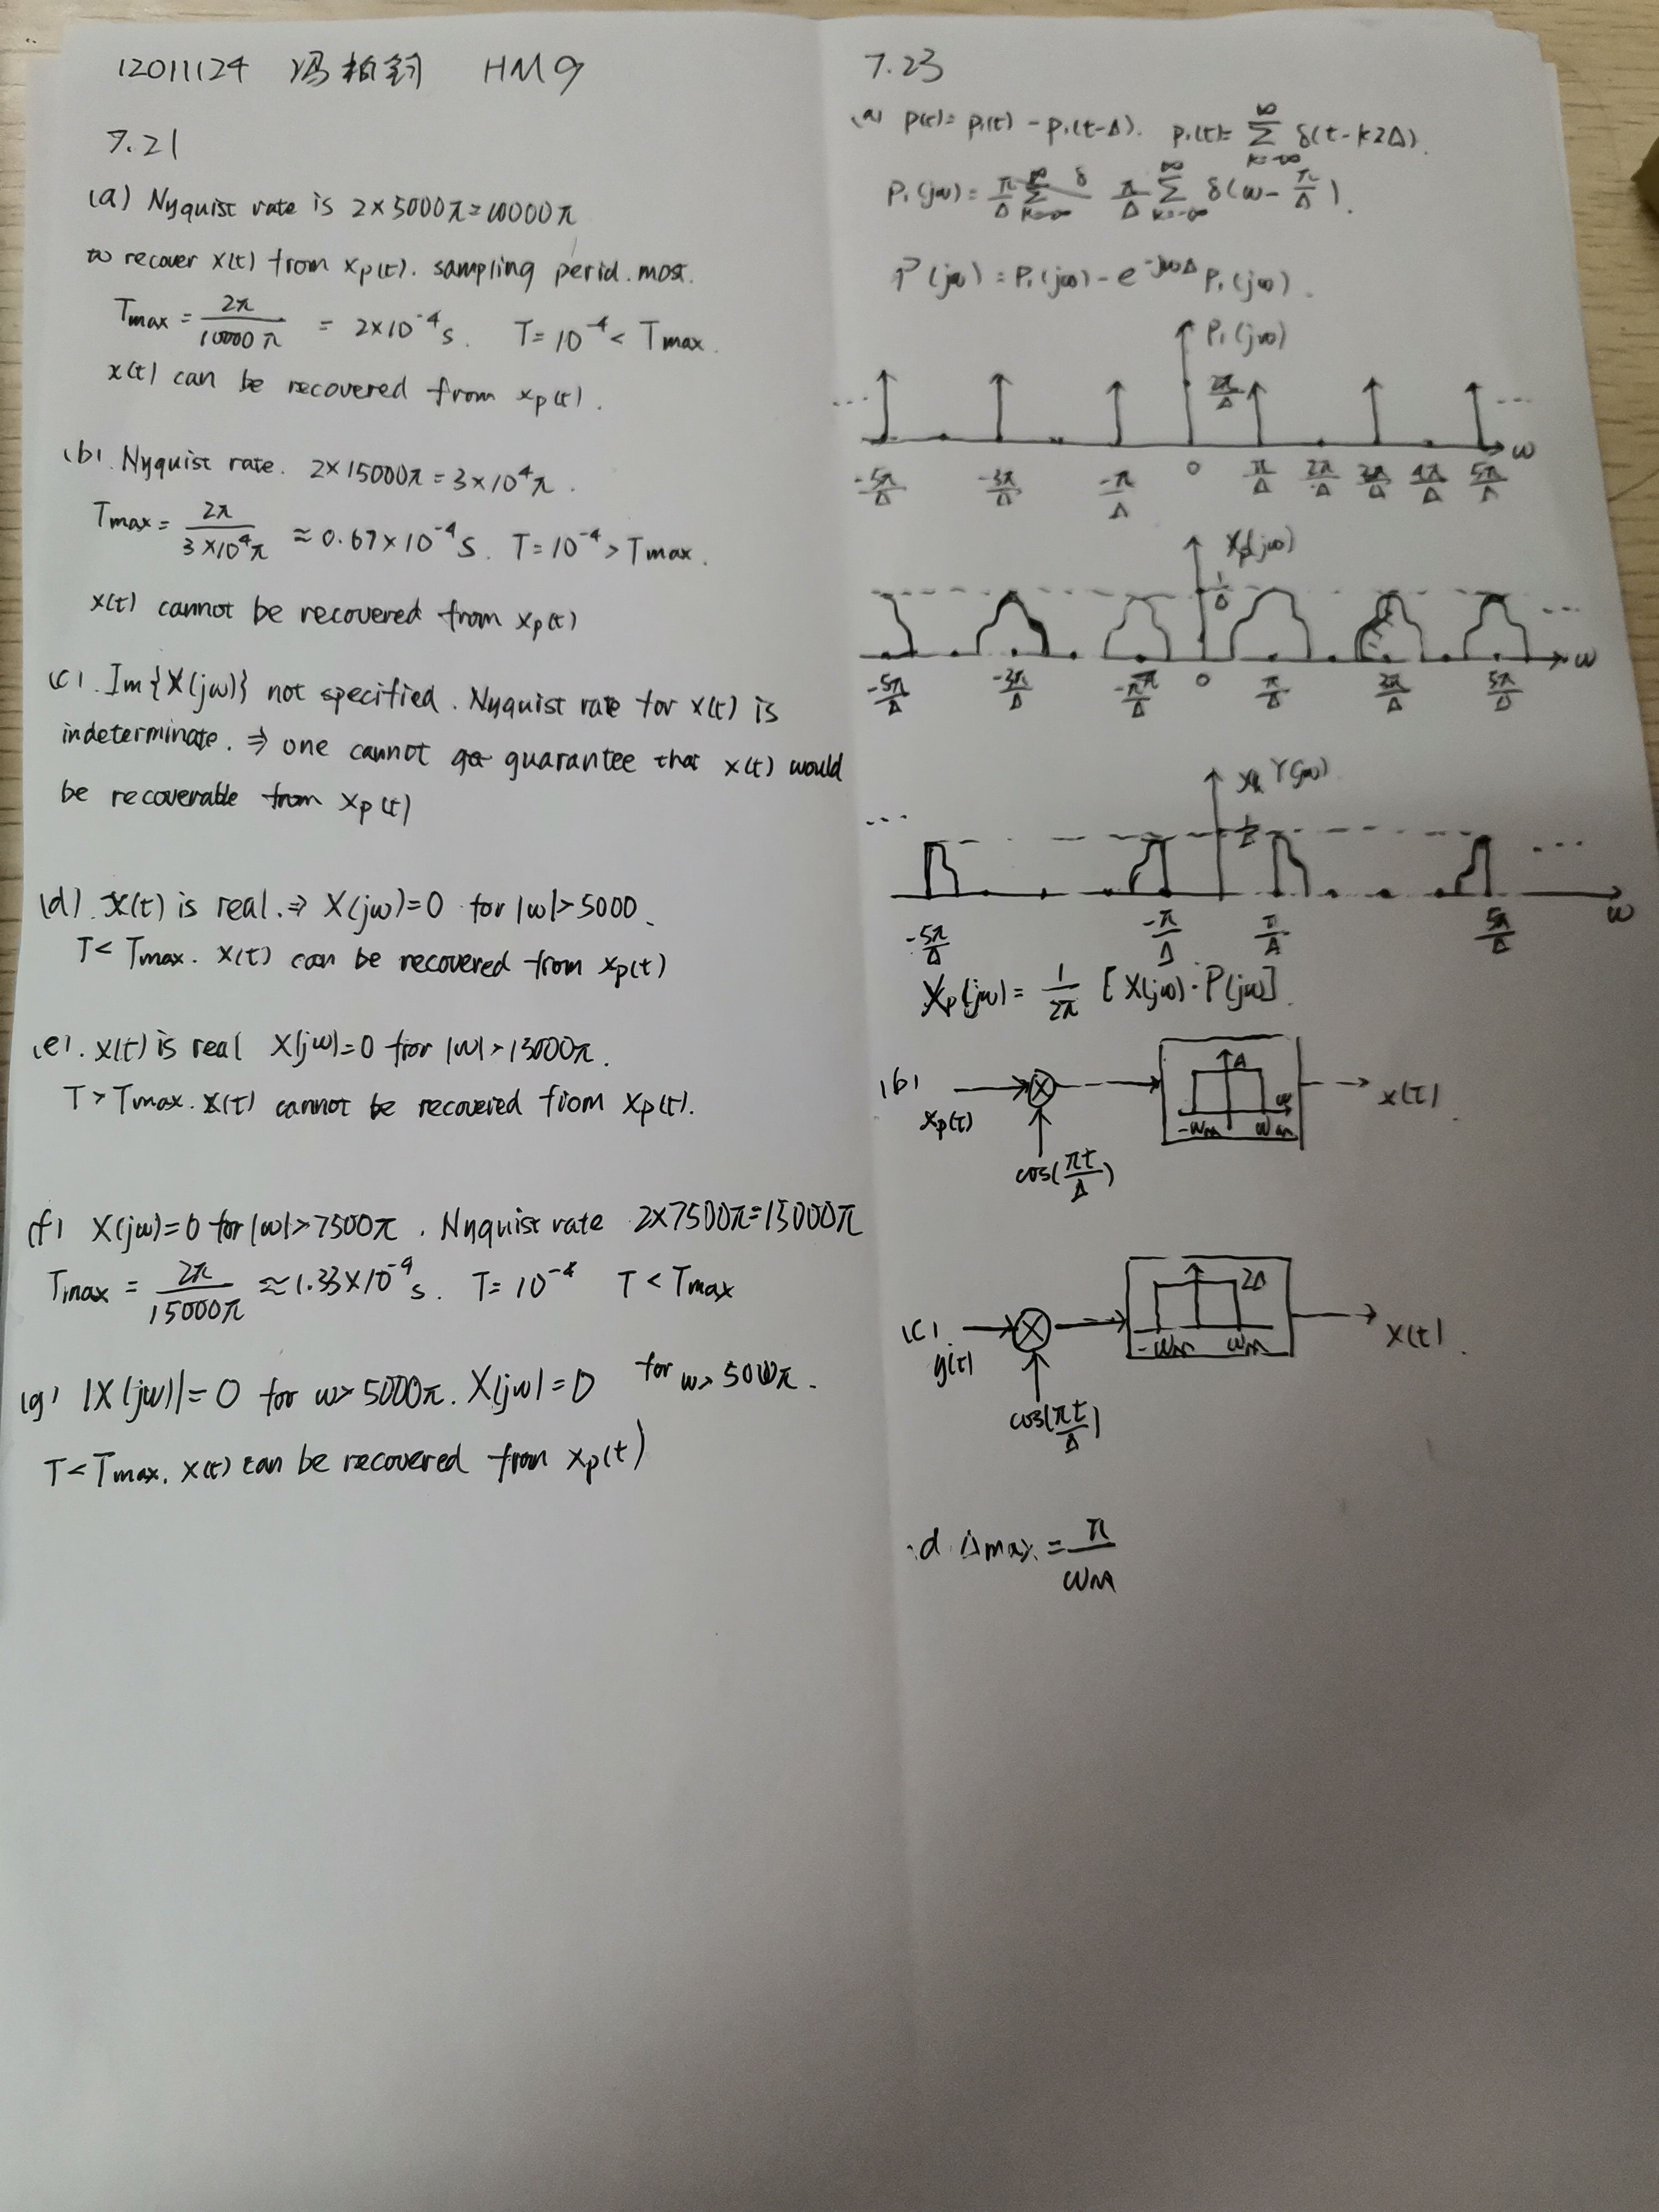 12011124 冯柏钧 HM9
7.21
(a) Nyquist rate is 2×5000π=10000π
to recover x(t) from xp(t). sampling perid. most.
Tmax = 2π/10000π = 2×10^-4 s. T=10^-4 < Tmax.
x(t) can be recovered from xp(t).
(b). Nyquist rate. 2×15000π=3×10^4π.
Tmax = 2π/3×10^4π ≈ 0.67×10^-4 s. T=10^-4 > Tmax.
x(t) cannot be recovered from xp(t)
(c). Im{X(jω)} not specified. Nyquist rate for x(t) is
indeterminate. ⇒ one cannot guarantee that x(t) would
be recoverable from xp(t)
(d). x(t) is real. ⇒ X(jω)=0 for |ω|>5000.
T< Tmax. x(t) can be recovered from xp(t)
(e). x(t) is real X(jω)=0 for |ω|>15000π.
T> Tmax. x(t) cannot be recovered from xp(t).
(f) X(jω)=0 for |ω|>7500π. Nyquist rate 2×7500π=15000π
Tmax = 2π/15000π ≈1.33×10^-4 s. T=10^-4 T<Tmax
(g) |X(jω)|=0 for ω>5000π. X(jω)=0 for ω>5000π.
T<Tmax. x(t) can be recovered from xp(t)
7.23
(a) p(t)= p1(t) - p1(t-Δ). p1(t)= ∞ Σ k=-∞ δ(t-k2Δ).
P1(jω)= π/Δ ∞ Σ k=-∞ δ(ω-π/Δ).
P(jω) = P1(jω) - e^-jωΔ P1(jω).
P1(jω)
2π/Δ
... ...
ω
-5π/Δ -3π/Δ -π/Δ 0 π/Δ 2π/Δ 3π/Δ 4π/Δ 5π/Δ
Xp(jω)
1/Δ
...
ω
-5π/Δ -3π/Δ -π/Δ 0 π/Δ 3π/Δ 5π/Δ
Y(jω)
... ...
ω
-5π/Δ -π/Δ π/Δ 5π/Δ
Xp(jω) = 1/2π [X(jω)·P(jω)].
(b) xp(t) cos(πt/Δ) Δ ω -ωM ωM x(t)
(c). y(t) cos(πt/Δ) 2Δ -ωM ωM x(t).
d Δmax = π/ωM